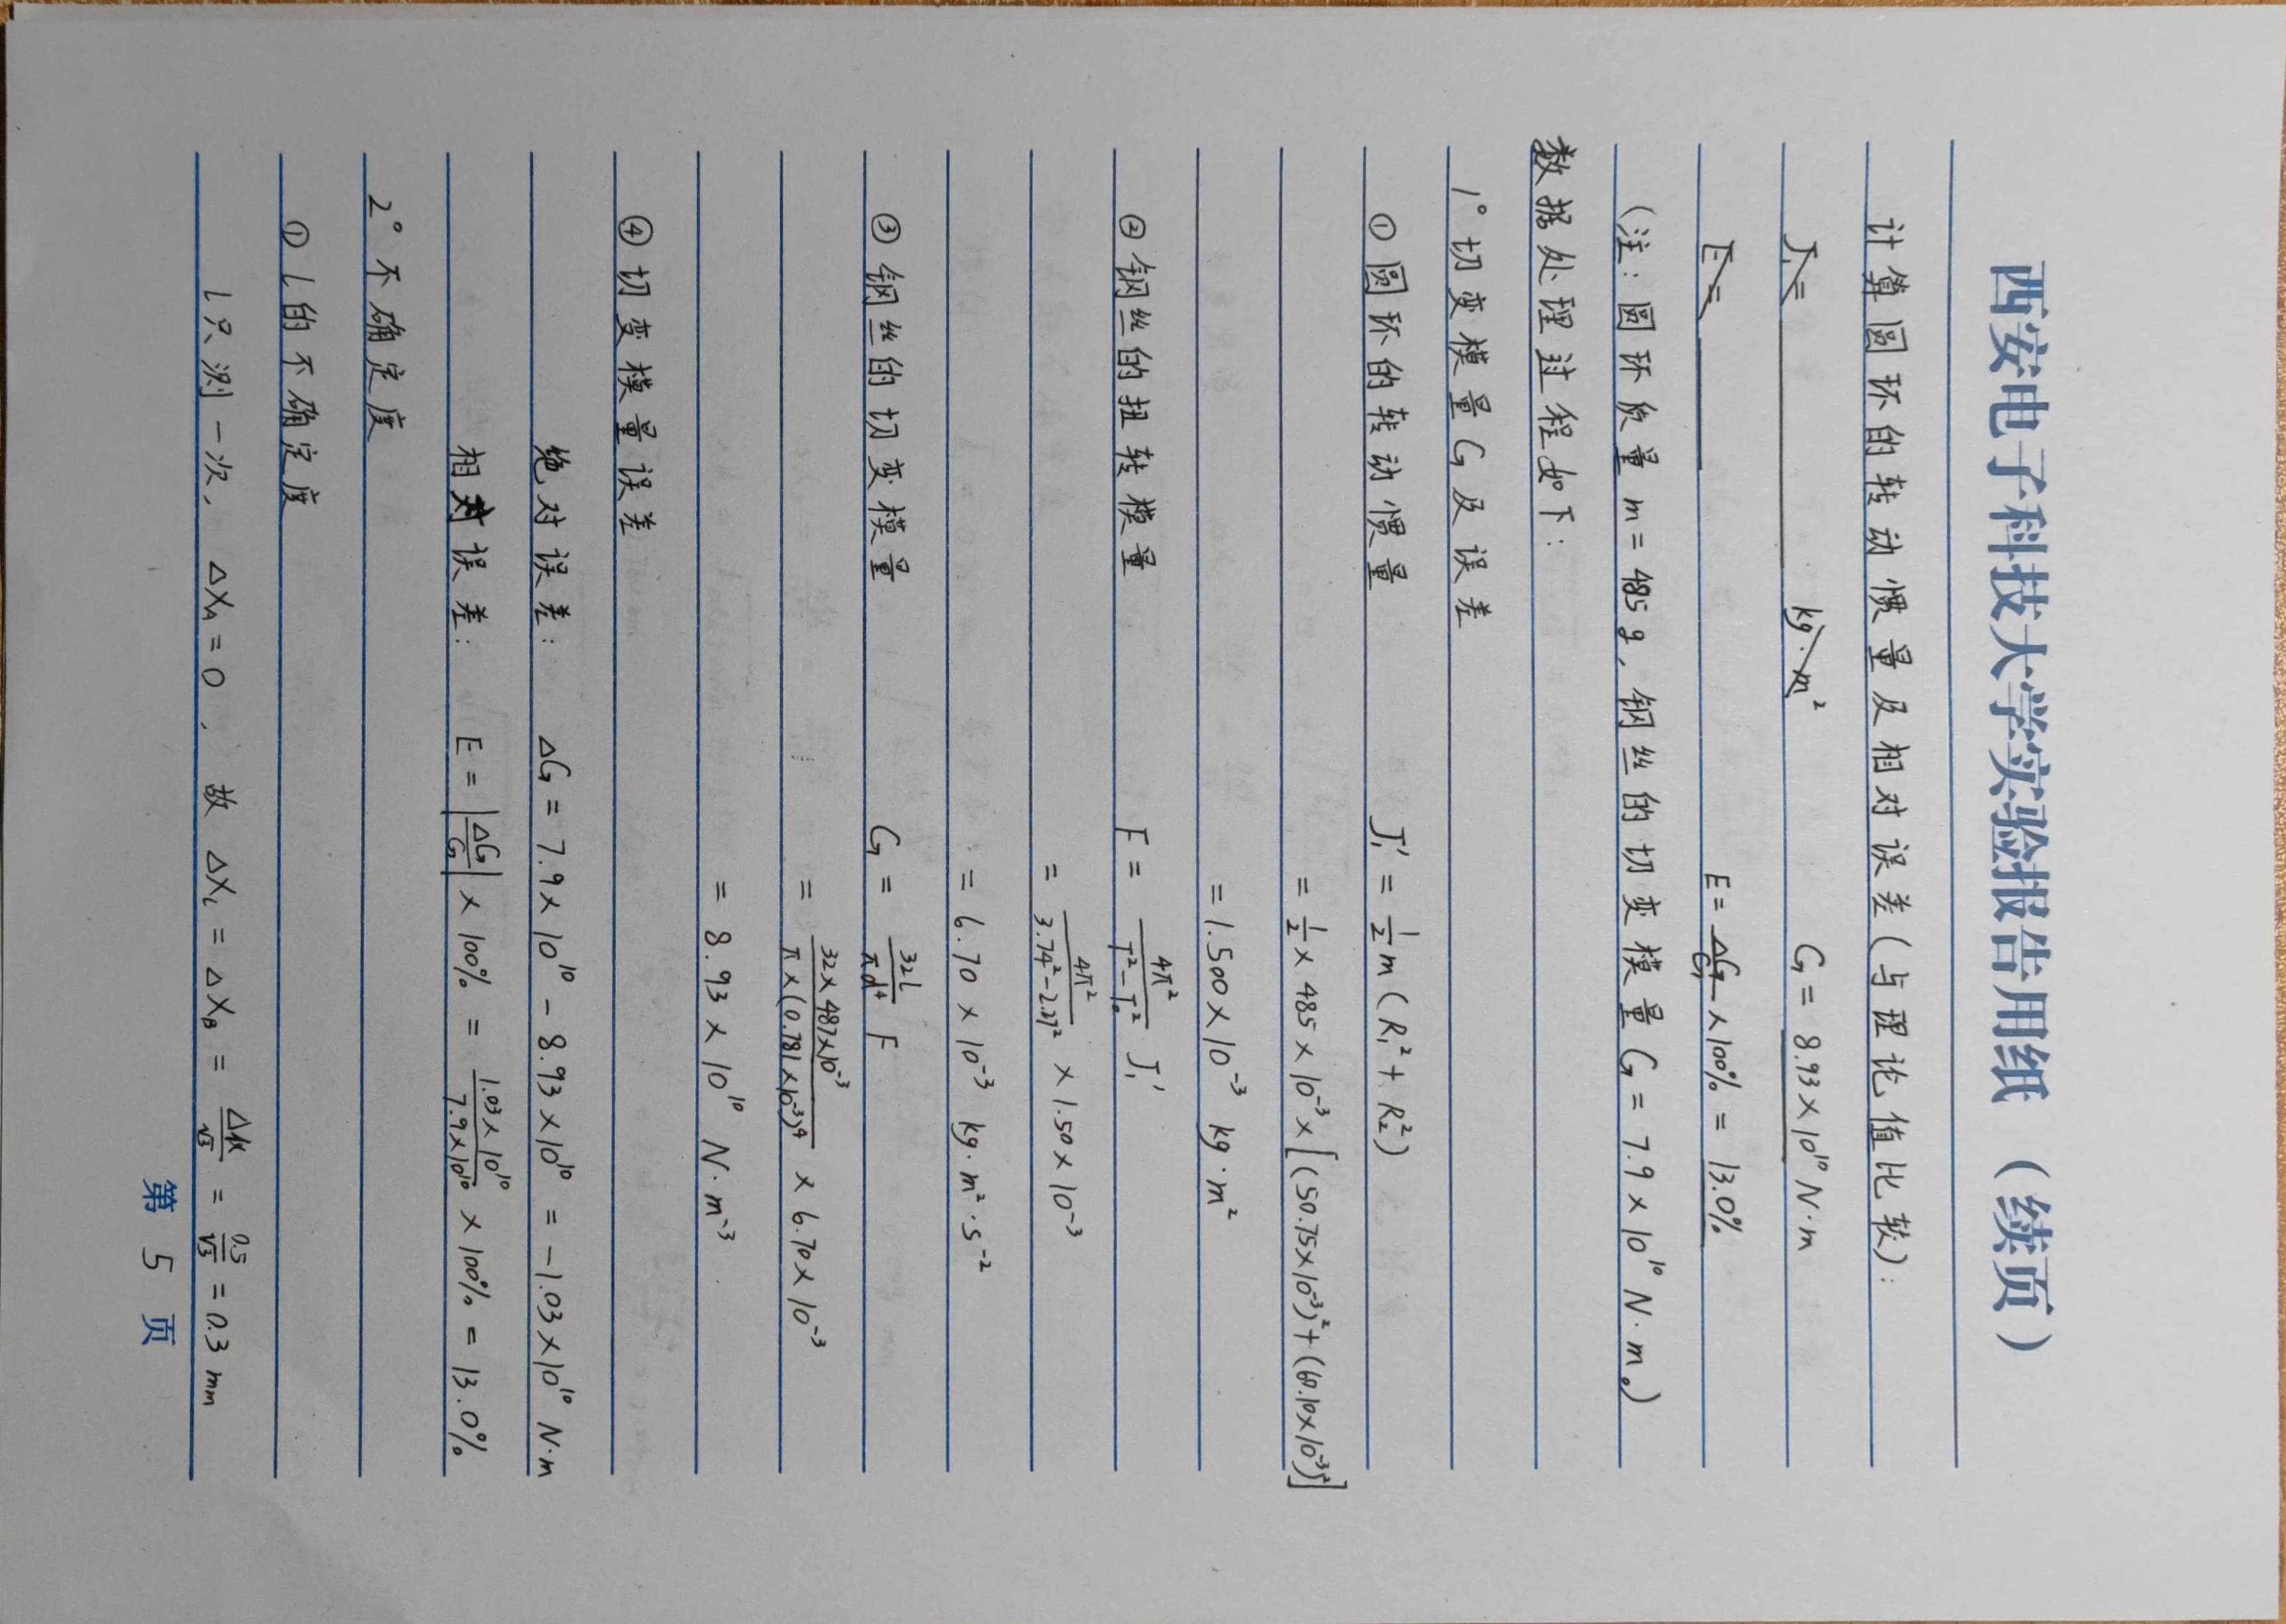 西安电子科技大学实验报告用纸 （续页）
计算圆环的转动惯量及相对误差（与理论值比较）：
J₁ = ________ kg·m² G = 8.93×10¹⁰ N·m
E = ________ E = ΔG/G ×100% = 13.0%
（注：圆环质量 m = 485 g，钢丝的切变模量 G = 7.9×10¹⁰ N·m。）
数据处理过程如下：
1° 切变模量 G 及误差
① 圆环的转动惯量 J₁′ = 1/2 m (R₁² + R₂²)
= 1/2 × 485 × 10⁻³ × [(50.75×10⁻³)² + (60.10×10⁻³)²]
= 1.500×10⁻³ kg·m²
② 钢丝的扭转模量 F = 4π²/(T²−T₀²) J₁′
= 4π²/(3.74²−2.27²) × 1.50×10⁻³
= 6.70 × 10⁻³ kg·m²·s⁻²
③ 钢丝的切变模量 G = 32l/(πd⁴) F
= 32×487×10⁻³/(π×(0.781×10⁻³)⁴) × 6.70×10⁻³
= 8.93 × 10¹⁰ N·m⁻³
④ 切变模量误差
绝对误差： ΔG = 7.9×10¹⁰ − 8.93×10¹⁰ = −1.03×10¹⁰ N·m
相对误差： E = |ΔG/G| × 100% = 1.03×10¹⁰/7.9×10¹⁰ × 100% = 13.0%
2° 不确定度
① l 的不确定度
l 只测一次，ΔX_A = 0，故 ΔX_l = ΔX_B = Δ仪/√3 = 0.5/√3 = 0.3 mm
第 5 页